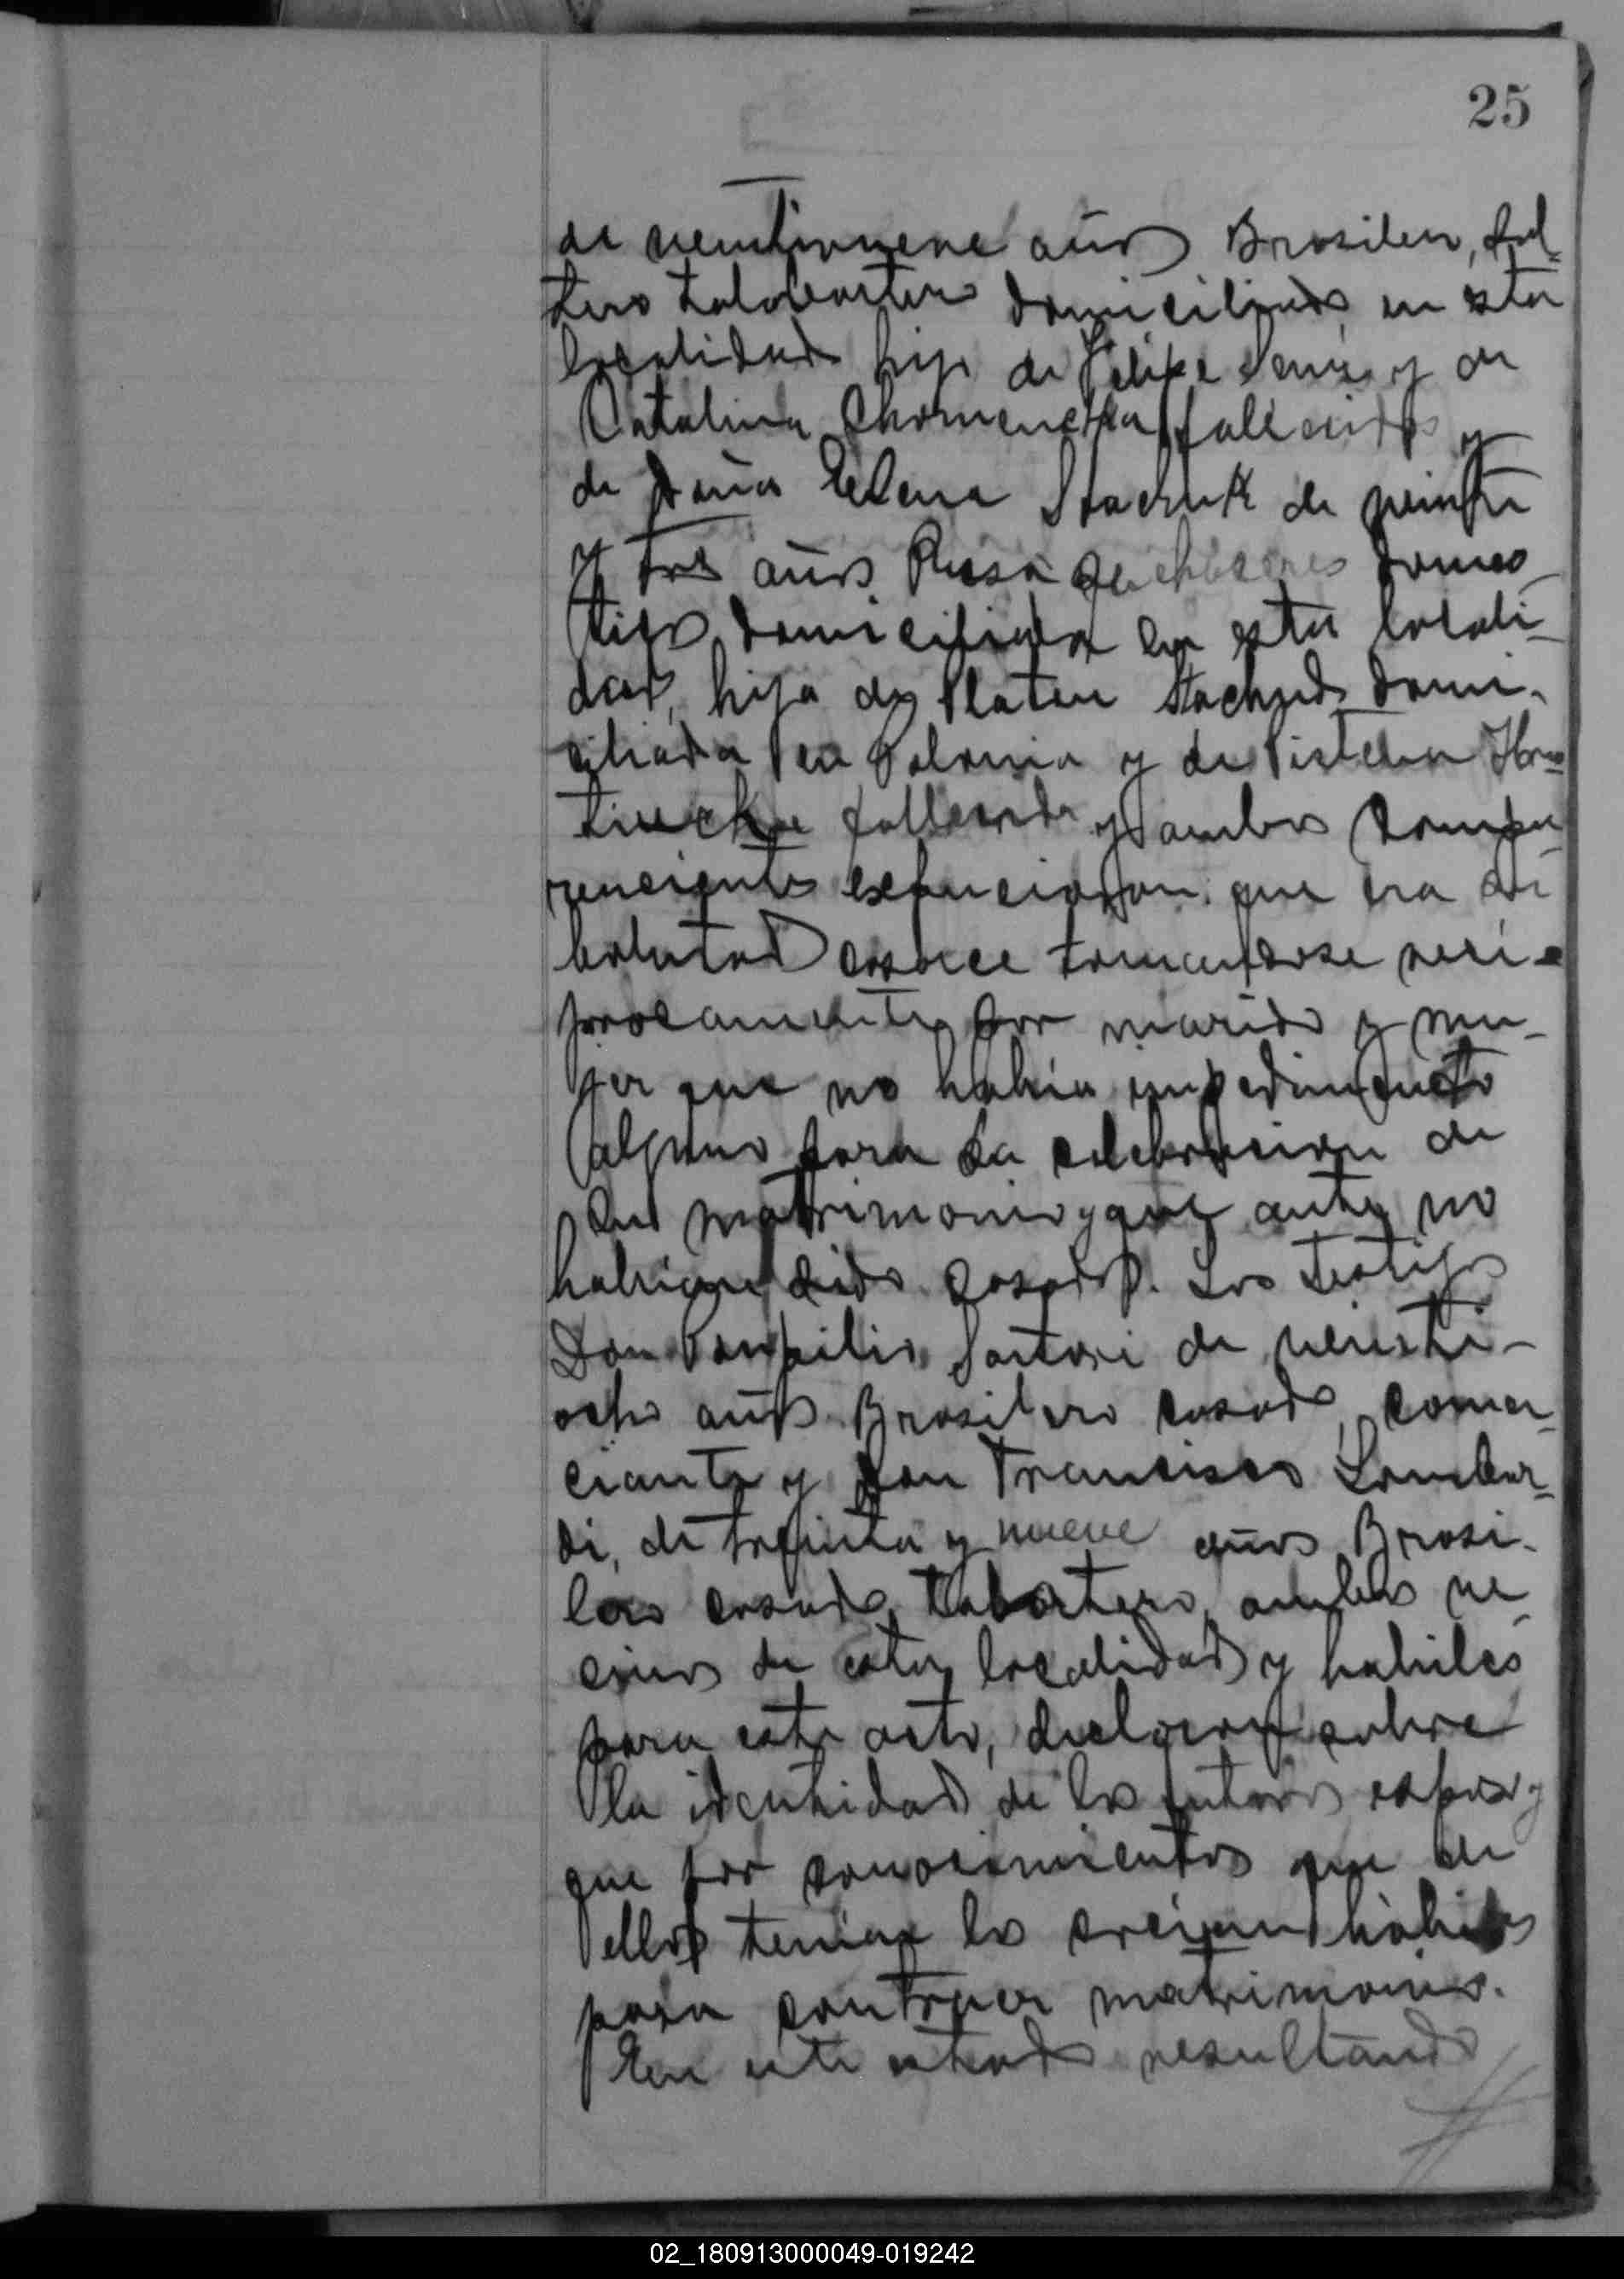 25
de veintinueve años Brasilero, sol-
tero talabartero domiciliado en esta
localidad hijo de Felipe y de
Catalina fallecidos y
de Doña Elena Stachuk de veinti
y tres años Rusa quehaceres domes-
ticos, domiciliada en esta locali-
dad, hija de Platon Stachuk domi-
ciliada en Polonia y de
fallecida y ambos compa-
recientes expresaron que era su
bolutad casarce tomandose reci-
procamente por marido y mu-
jer que no habia impedimento
alguno para la celebracion de
su matrimonio y que antes no
habian sido casados. Los testigos
Don Ponpilio Sartori de veinti-
ocho años Brasilero casado, comer-
ciante y Don Francisco Lombar-
di, de treinta y nueve años Brasi-
lero casado, ambos ve-
cinos de esta localidad y habiles
para este acto, declaran sobre
la identidad de los futuros esposos y
que por conocimientos que de
ellos tenian los creian habiles
para contraer matrimonio.
En este estado resultando
02_180913000049-019242